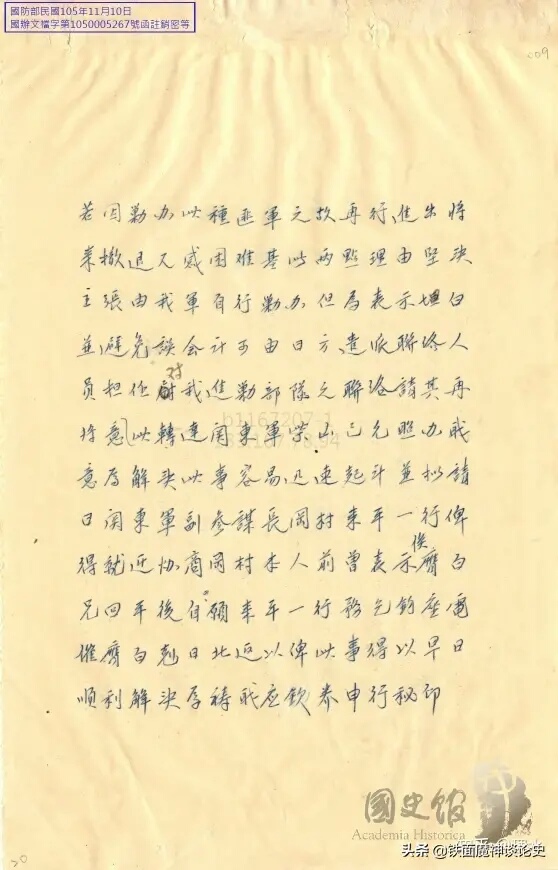 國防部民國105年11月10日
國辦文檔字第1050005267號函註銷密等
009
若因剿办此種匪軍之故再行進出將
来撤退又感困难基此两點理由坚決
主張由我軍自行剿办但為表示坦白
並避免誤会计可由日方遣派聯络人
員担任对我進剿部隊之聯络請其再
将意以轉達関東軍柴山已允照办职
意為解決此事容易迅速起斗並拟請
日関東軍副参謀長岡村来平一行俾
得就近协商岡村本人前曾表示俟膺白
兄回平後自願来平一行務乞鈞座電
催膺白兄剋日北返以俾此事得以早日
順利解決為祷职应欽叅申行秘印
b1167207-1
國史館
Academia Historica
头条 @铁面魔神谈论史
20